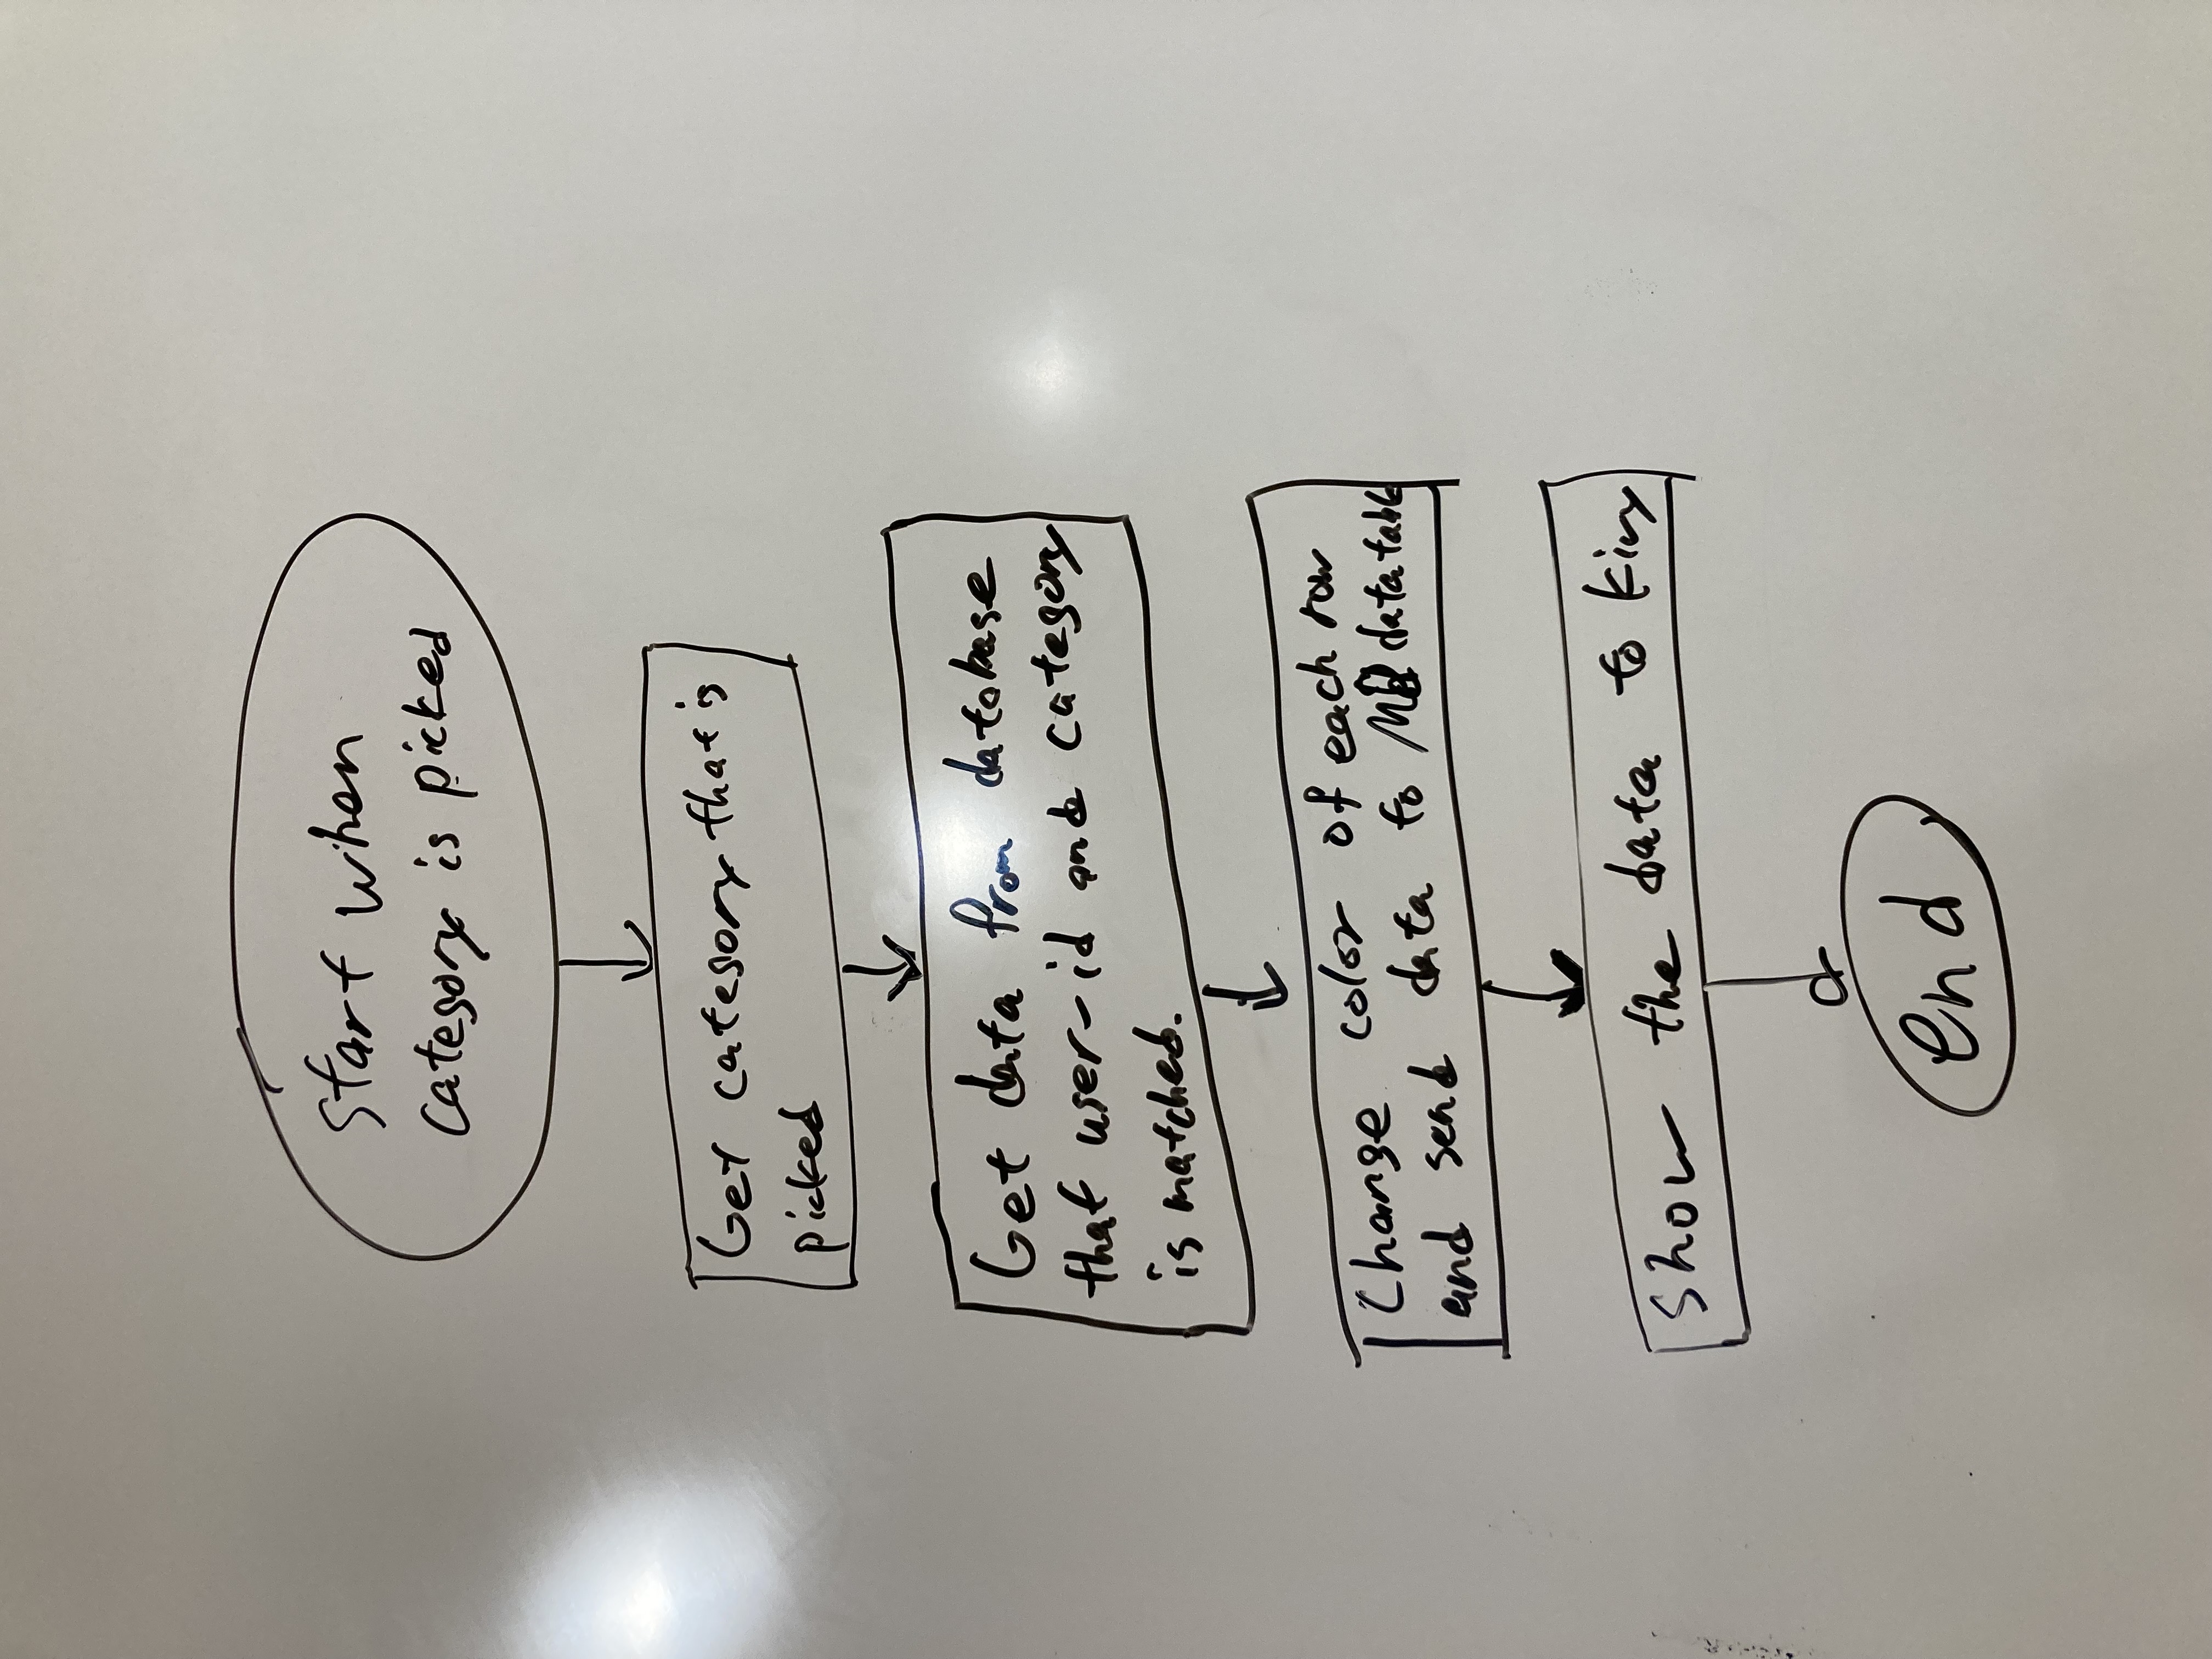 Start when
category is picked
Get category that is
picked
Get data from database
that user-id and category
is matched.
Change color of each row
and send data to MD datatable
show the data to kivy
end